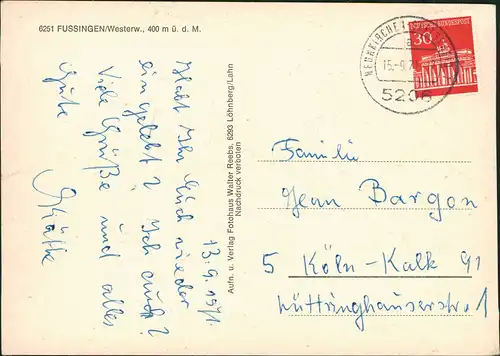 6251 FUSSINGEN/Westerw., 400 m ü. d. M.
13.9.1971.
Habt Ihr Euch wieder
eingelebt? Ich auch?
Viele Grüße und alles
Gute
Käthe
Aufn. u. Verlag Fotohaus Walter Reebs, 6293 Löhnberg/Lahn
Nachdruck verboten
DEUTSCHE BUNDESPOST
30
NEUNKIRCHEN
a
5206
Familie
Jean Bargon
5 Köln-Kalk 91
Lüttringhauserstr. 1